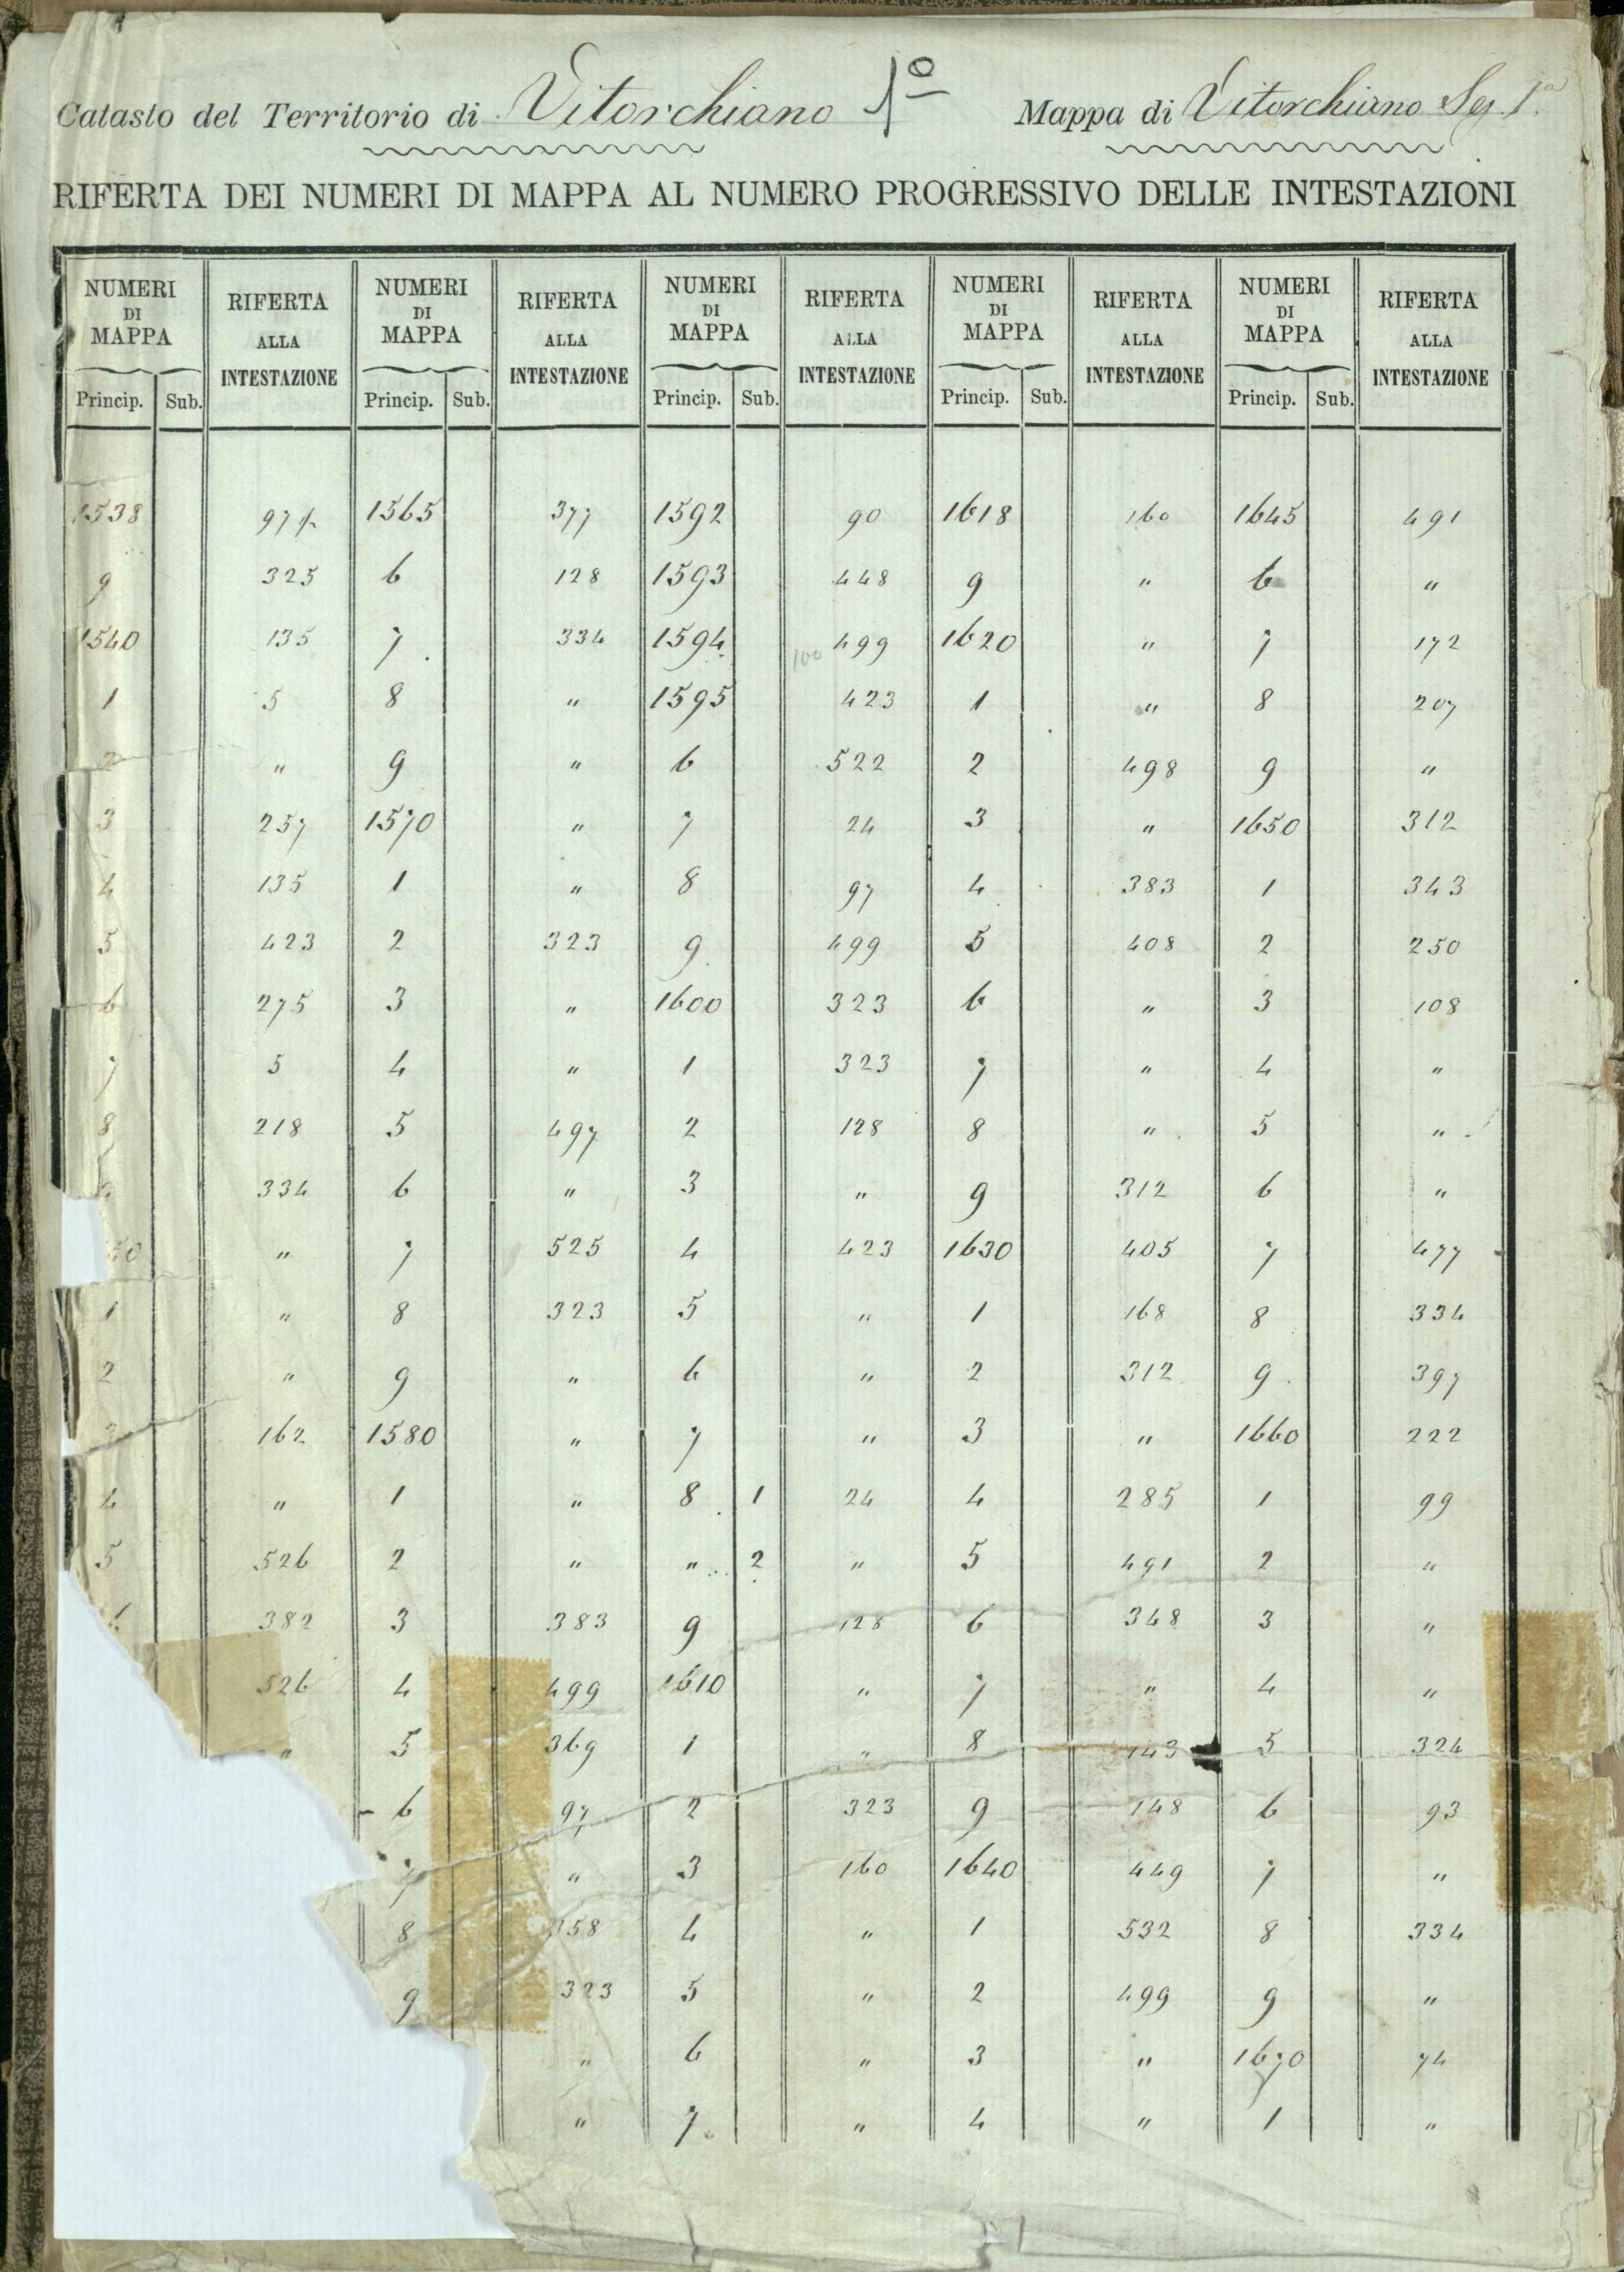 Catasto del Territorio di Vitorchiano 1º Mappa di Vitorchiano Sez. 1.ª
RIFERTA DEI NUMERI DI MAPPA AL NUMERO PROGRESSIVO DELLE INTESTAZIONI
NUMERI DI MAPPA RIFERTA ALLA INTESTAZIONE NUMERI DI MAPPA RIFERTA ALLA INTESTAZIONE NUMERI DI MAPPA RIFERTA ALLA INTESTAZIONE NUMERI DI MAPPA RIFERTA ALLA INTESTAZIONE NUMERI DI MAPPA RIFERTA ALLA INTESTAZIONE
Princip. Sub. Princip. Sub. Princip. Sub. Princip. Sub. Princip. Sub.
1538 1565 377 1592 90 1618 160 1645 491
9 325 6 128 1593 448 9 " 6 "
1540 135 7 334 1594 100 499 1620 " 7 172
1 5 8 " 1595 423 1 " 8 207
2 " 9 " 6 522 2 498 9 "
3 257 1570 " 7 24 3 " 1650 312
4 135 1 " 8 97 4 383 1 343
5 423 2 323 9 499 5 408 2 250
6 275 3 " 1600 323 6 " 3 108
7 5 4 " 1 323 7 " 4 "
8 218 5 497 2 128 8 " 5 "
334 6 " 3 " 9 312 6 "
50 " 7 525 4 423 1630 405 7 477
1 " 8 323 5 " 1 168 8 334
2 " 9 " 6 " 2 312 9 397
162 1580 " 7 " 3 " 1660 222
4 " 1 " 8 1 24 4 285 1 99
5 526 2 " " 2 " 5 491 2 "
382 3 383 9 128 6 348 3 "
526 4 499 1610 " 7 " 4 "
" 5 369 1 " 8 143 5 324
6 97 2 323 9 148 6 93
7 " 3 160 1640 449 7 "
8 358 4 " 1 532 8 334
9 323 5 " 2 499 9 "
" 6 " 3 " 1670 74
" 7 " 4 " 1 "